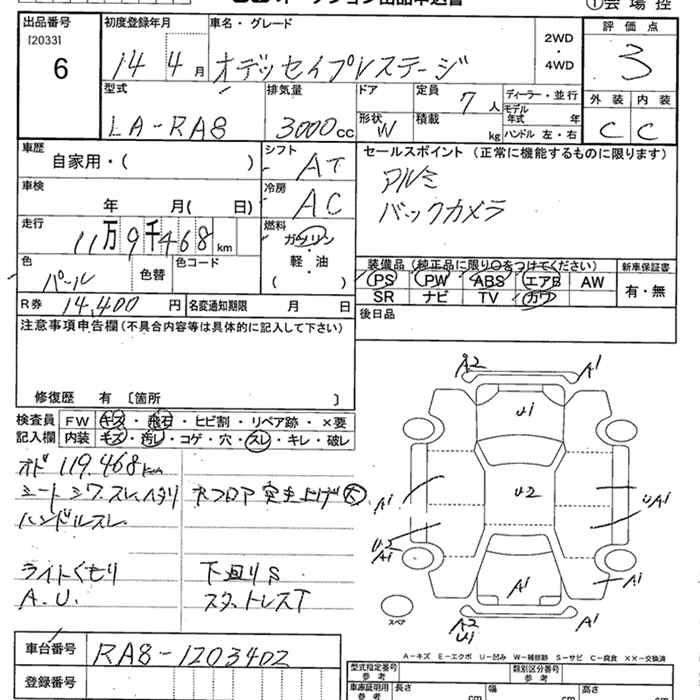 オークション出品申込書
①会場控
出品番号
[20331]
6
初度登録年月
14 4月
車名・グレード
オデッセイプレステージ
2WD
・
4WD
評価点
3
型式
LA-RA8
排気量
3000cc
ドア
形状
W
定員
7人
積載
kg
ディーラー・並行
モデル年式 年
ハンドル 左・右
外装 内装
C C
車歴
自家用・( )
シフト
AT
セールスポイント(正常に機能するものに限ります)
アルミ
バックカメラ
車検
年 月( 日)
冷房
AC
走行
11万9千468km
燃料
ガソリン
・
軽・油
( )
色
パール
色替
色コード
装備品(純正品に限り○をつけてください)
PS PW ABS エアB AW
SR ナビ TV カワ
新車保証書
有・無
R券 14,400円
名変通知期限 月 日
後日品
注意事項申告欄(不具合内容等は具体的に記入して下さい)
修復歴 有 〔箇所 〕
検査員記入欄
FW キズ・飛石・ヒビ割・リペア跡・×要
内装 キズ・汚レ・コゲ・穴・スレ・キレ・破レ
オド 119.468km
シートシワ、スレ、ヘタリ
ハンドルスレ
ライトくもり
A.U.
下廻りS
スタットレスT
A2 A1
U1
U2
A1
UA1
U2
A1
A1
A1
A2
U1
A1
スペア
A-キズ E-エクボ U-凹み W-補修跡 S-サビ C-腐食 ××-交換済
車台番号 RA8-1203402
登録番号
型式指定番号
参考
類別区分番号
参考
車庫証明用
参考
長さ cm
幅 cm
高さ cm